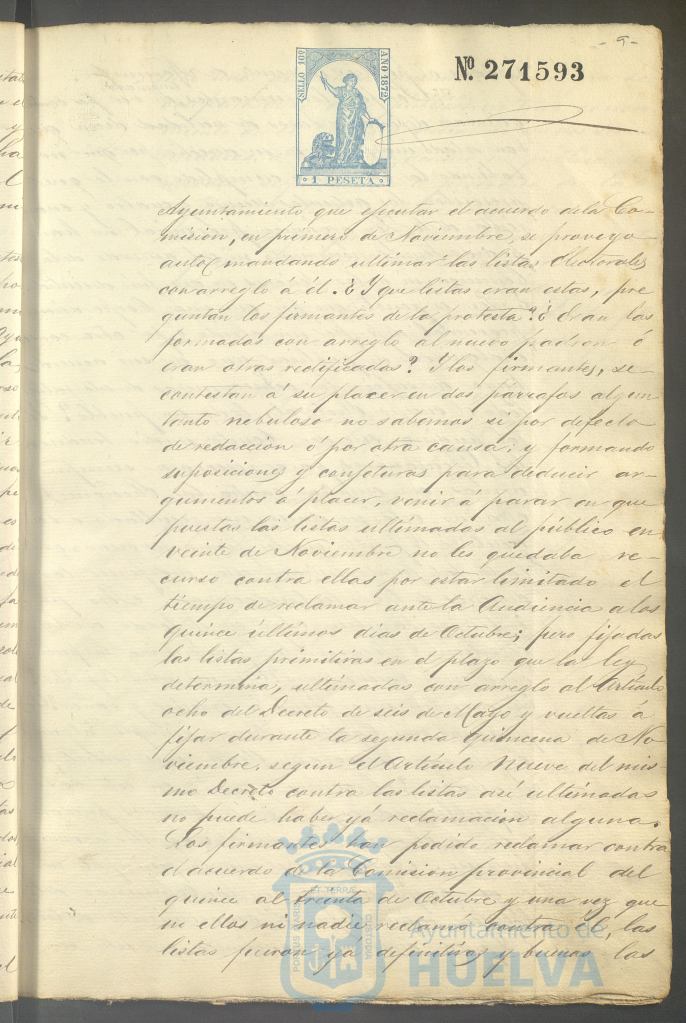 - 5 -
SELLO 10º
AÑO 1872
1 PESETA
Nº 271593
Ayuntamiento que ejecutar el acuerdo de la Co-
mision, en primero de Noviembre, se proveyo
auto mandando ultimar las listas electorales
con arreglo á él. ¿Y que listas eran estas, pre
guntan los firmantes de la protesta? ¿Eran las
formadas con arreglo al nuevo padron ó
eran otras rectificadas? Y los firmantes, se
contestan á su placer en dos párrafos algun
tanto nebuloso no sabemos si por defecto
de redaccion ó por otra causa; y formando
suposiciones y conjeturas para deducir ar-
gumentos á placer, venir á parar en que
puestas las listas ultimadas al público en
veinte de Noviembre no les quedaba re-
curso contra ellas por estar limitado el
tiempo de reclamar ante la Audiencia a los
quince últimos dias de Octubre; pero fijadas
las listas primitivas en el plazo que la ley
determina, ultimadas con arreglo al Artículo
ocho del Decreto de seis de Mayo y vueltas á
fijar durante la segunda quincena de No
viembre, segun el Artículo nueve del mis-
mo Decreto contra las listas asi ultimadas
no puede haber yá reclamacion alguna.
Los firmantes han podido reclamar contra
el acuerdo de la Comision provincial del
quince al treinta de Octubre y una vez que
ni ellos ni nadie reclamó contra él, las
listas fueron yá definitivas y buenas las
PORTUS MARIS
ET TERRÆ
CUSTODIA
Ayuntamiento de
HUELVA